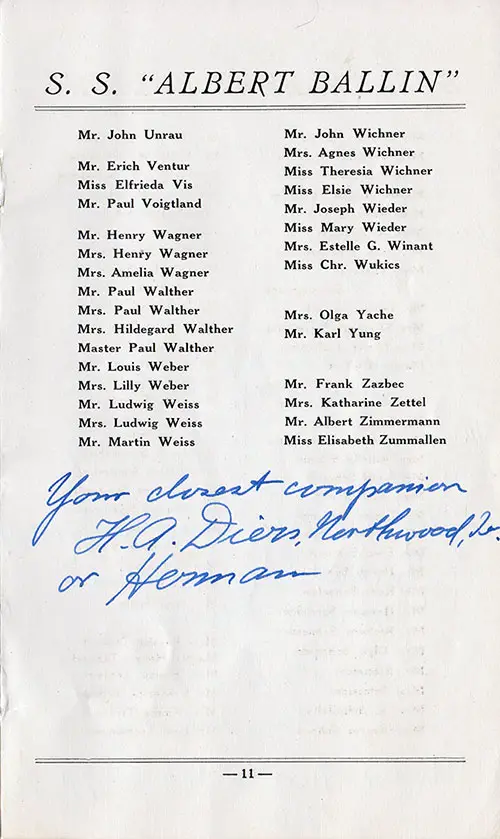 S. S. "ALBERT BALLIN"
Mr. John Unrau
Mr. Erich Ventur
Miss Elfrieda Vis
Mr. Paul Voigtland
Mr. Henry Wagner
Mrs. Henry Wagner
Mrs. Amelia Wagner
Mr. Paul Walther
Mrs. Paul Walther
Mrs. Hildegard Walther
Master Paul Walther
Mr. Louis Weber
Mrs. Lilly Weber
Mr. Ludwig Weiss
Mrs. Ludwig Weiss
Mr. Martin Weiss
Mr. John Wichner
Mrs. Agnes Wichner
Miss Theresia Wichner
Miss Elsie Wichner
Mr. Joseph Wieder
Miss Mary Wieder
Mrs. Estelle G. Winant
Miss Chr. Wukics
Mrs. Olga Yache
Mr. Karl Yung
Mr. Frank Zazbec
Mrs. Katharine Zettel
Mr. Albert Zimmermann
Miss Elisabeth Zummallen
Your closest companion
H. A. Diers, Northwood,
or Herman
— 11 —